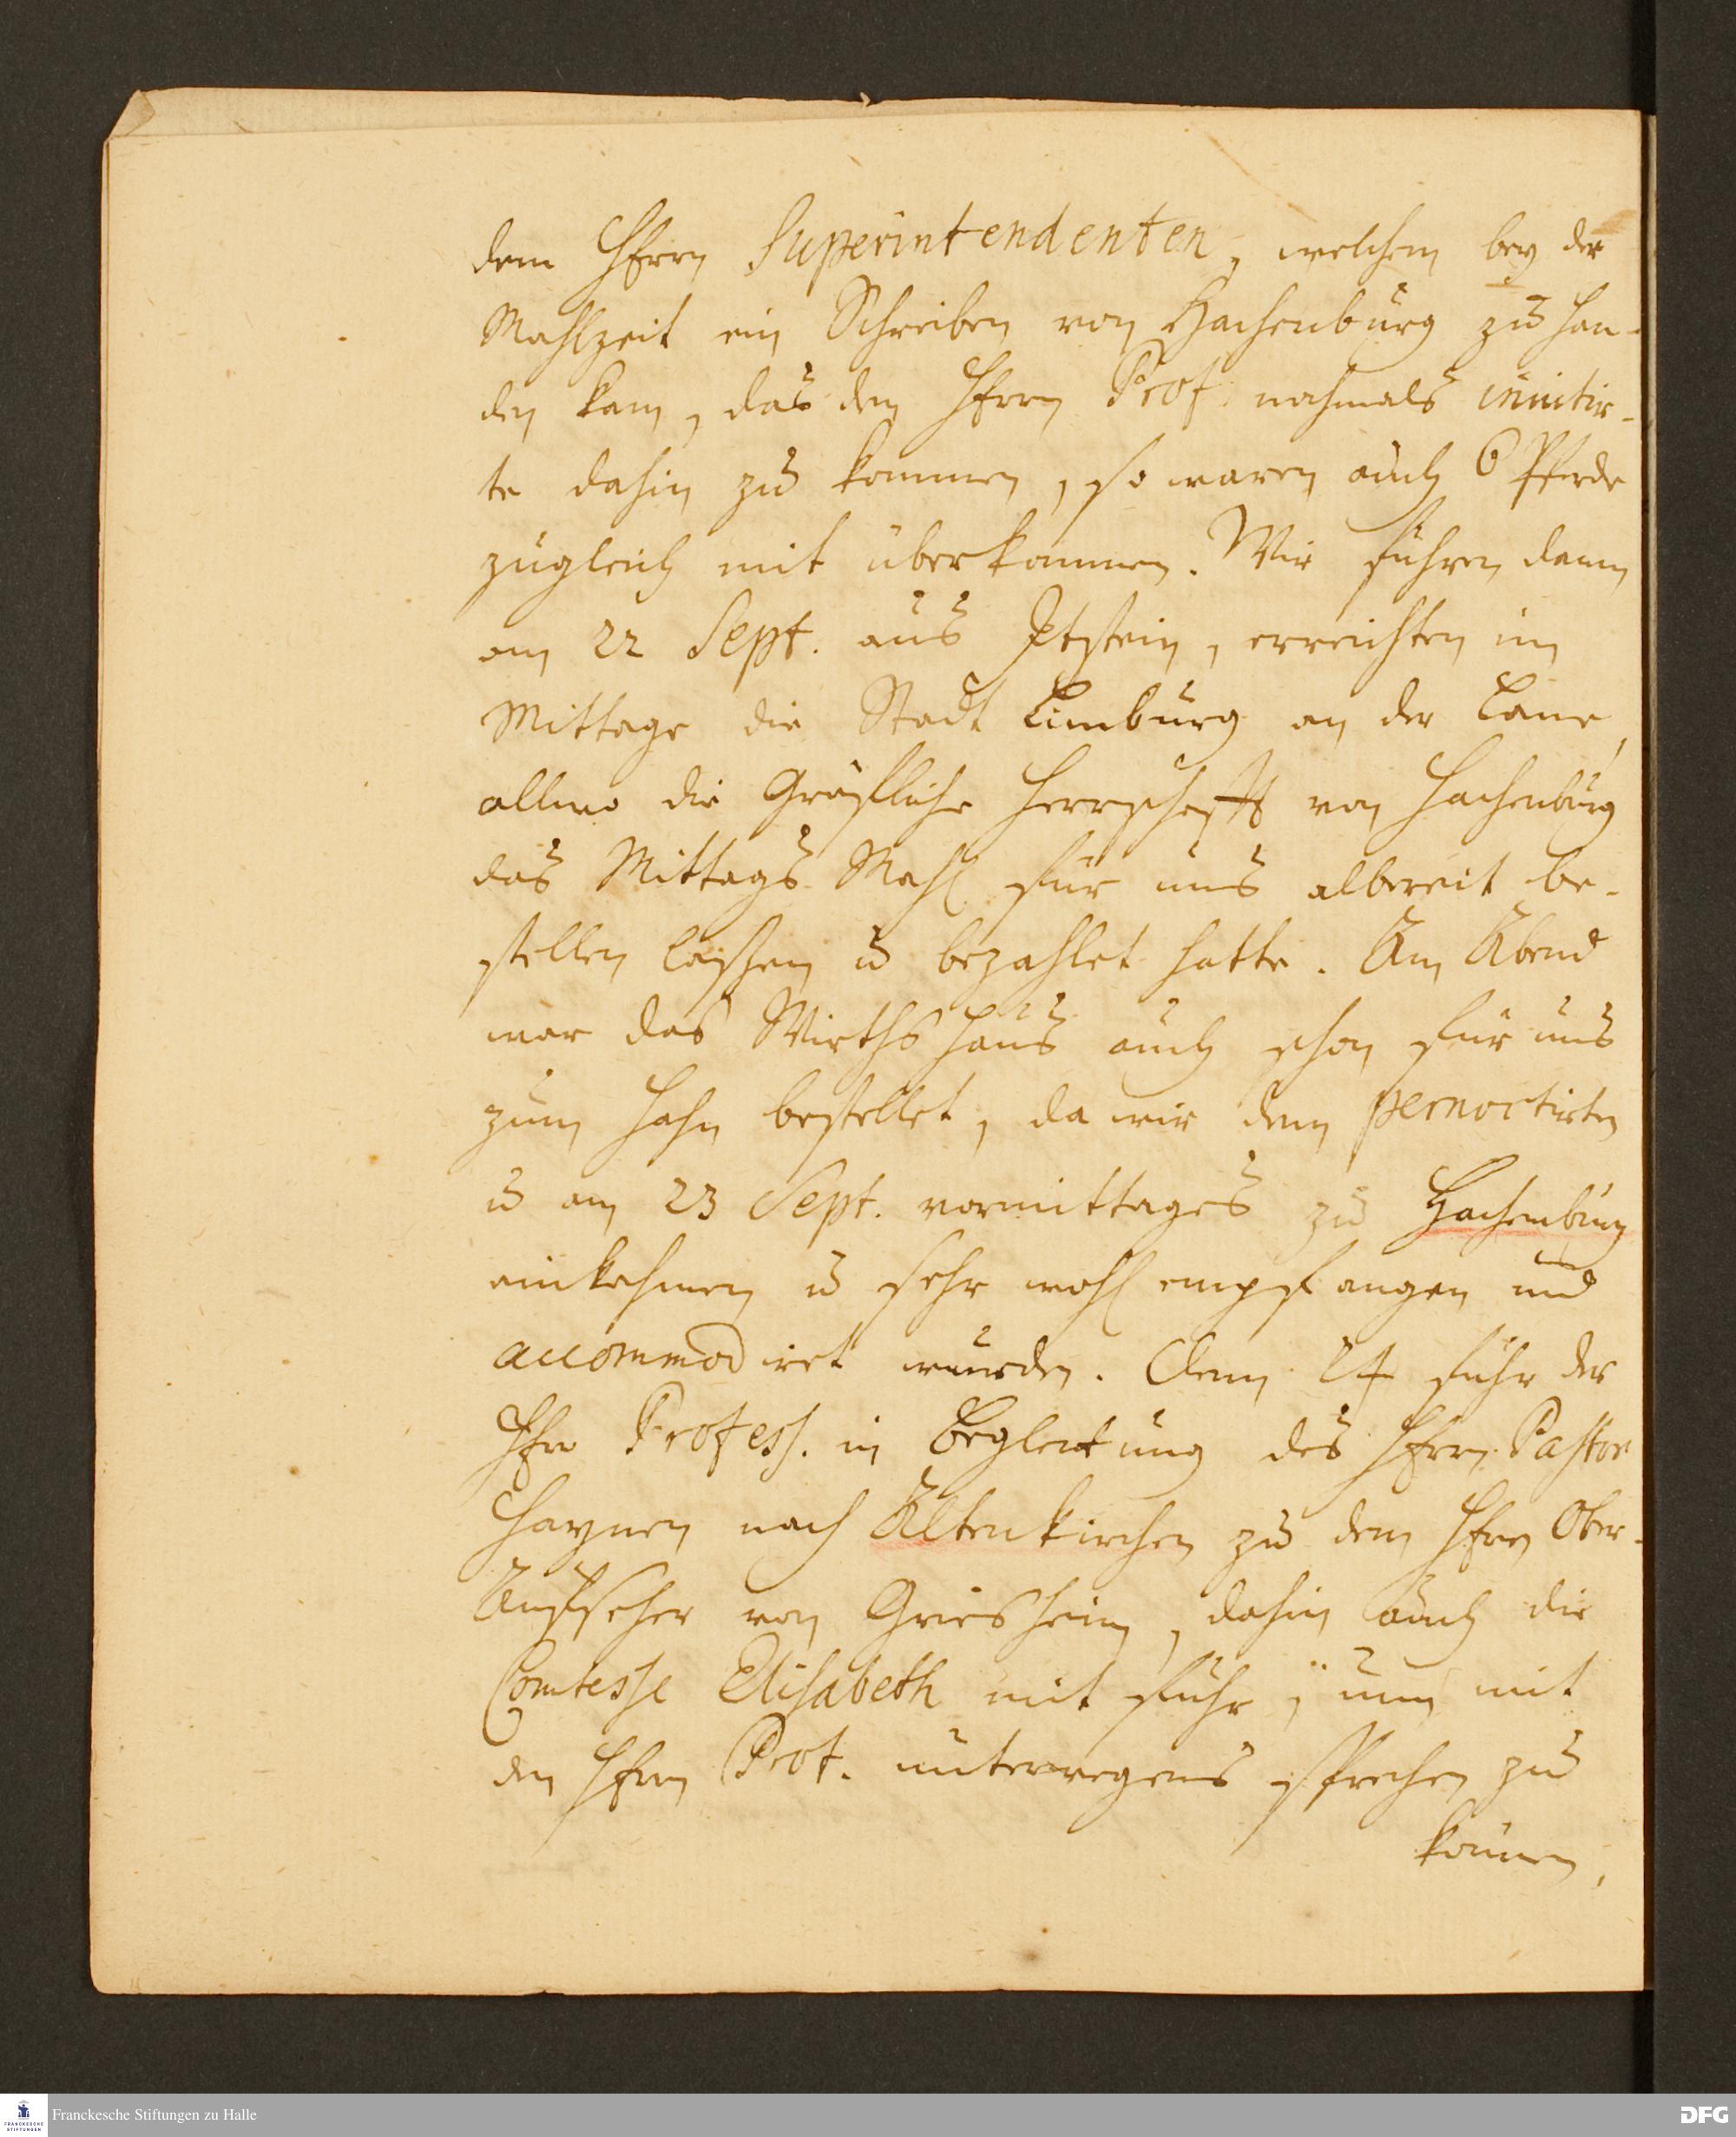 dem Hhrrn Superintendenten, welchem bey der
Mahlzeit ein Schreiben von Hachenburg zu han-
den kam, das den Hhrrn Prof. nochmals invitir-
te dahin zu kommen, so waren auch 6 Pferde
zugleich mit überkommen. Wir fuhren dann
am 22 Sept. aus Itstein, erreichten im
Mittage die Stadt Limburg an der Lane,
allwo die Gräfliche Herrschafft von Hachenburg
das Mittags Mahl für uns albereit be-
stellen laßen u bezahlet hatte. Am Abend
war das Wirthshaus auch schon für uns
zum Hahn bestellet, da wir denn pernoctirten
u am 23 Sept. vormittages zu Hachenburg
einkahmen u sehr wohl empfangen und
accommodiret wurden. Denn 24 fuhr der
Hhr Profess. in Begleitung des Hhrrn Pastor
Haynen nach Altenkirchen zu dem Hhrn Ober-
Auffseher von Griesheim, dahin auch die
Comtesse Elisabeth mit fuhr, um mit
den Hhrrn Prof. unterwegens sprechen zu
können,
Franckesche Stiftungen zu Halle
FRANCKESCHE STIFTUNGEN
DFG